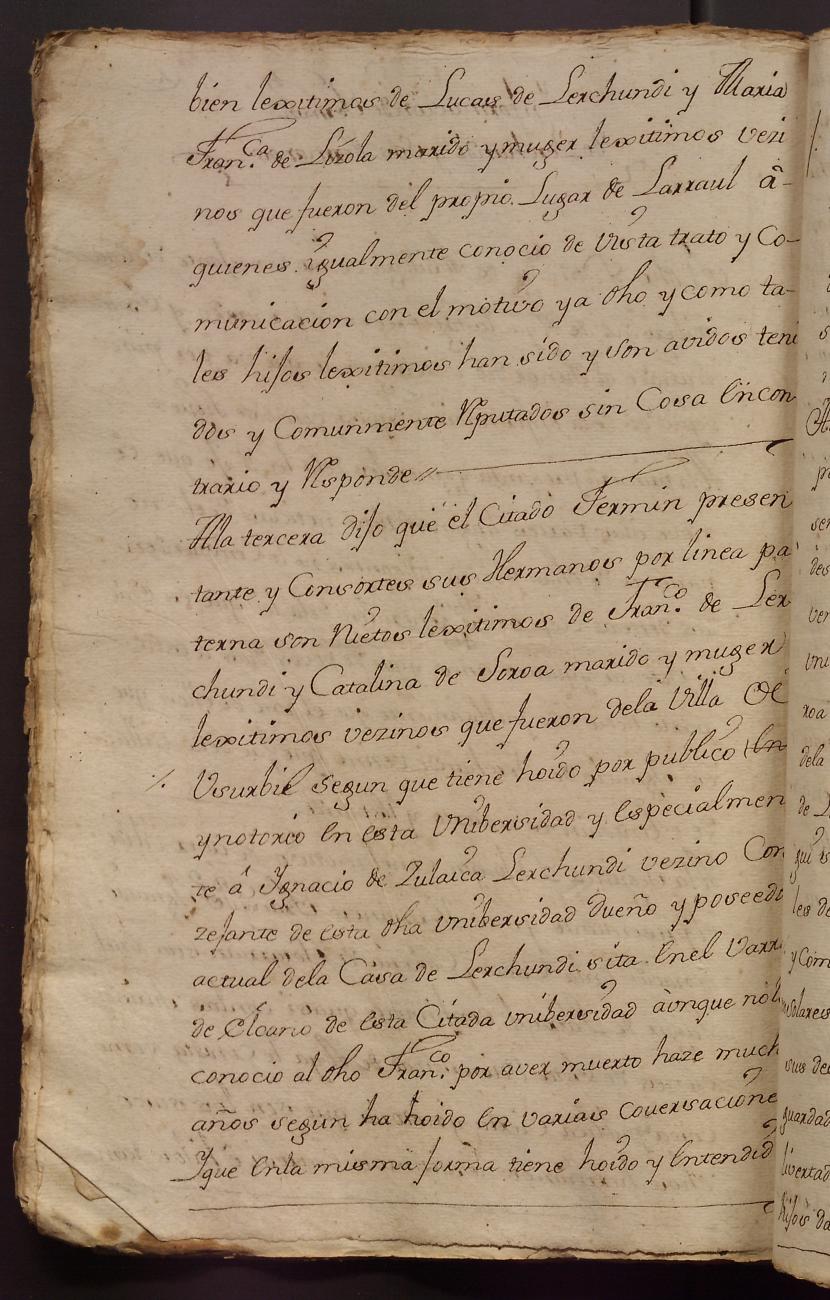 bien lexitimos de Lucas de Lerchundi y Maria
Fran.ca de Lizola marido y muger lexitimos vezi
nos que fueron del propio Lugar de Larraul â-
quienes ygualmente conocio de Vista trato y Co-
municacion con el motivo ya dho y como ta-
les hijos lexitimos han sido y son avidos teni
dos y Comunmente Rputados sin Cosa Encon
trario y Rsponde //
Alla tercera Dijo que el Citado Fermin presen
tante y Consortes sus Hermanos por linea pa
terna son Nietos lexitimos de Fran.co de Ler
chundi y Catalina de Soroa marido y muger
lexitimos vezinos que fueron dela Villa de
Vsurbil segun que tiene hoido por publico
ynotorio En esta Vnibersidad y Especialmen
te â Ygnacio de Zulaica Lerchundi vezino Con
zejante de esta dha vnibersidad dueño y poseedo
actual dela Casa de Lerchundi sita Enel Varr
de Elcano de esta Citada vnibersidad âunque no
conocio al dho Fran.co por aver muerto haze much
años segun ha hoido En varias coversacione
Yque Enla misma forma tiene hoido y Entendid